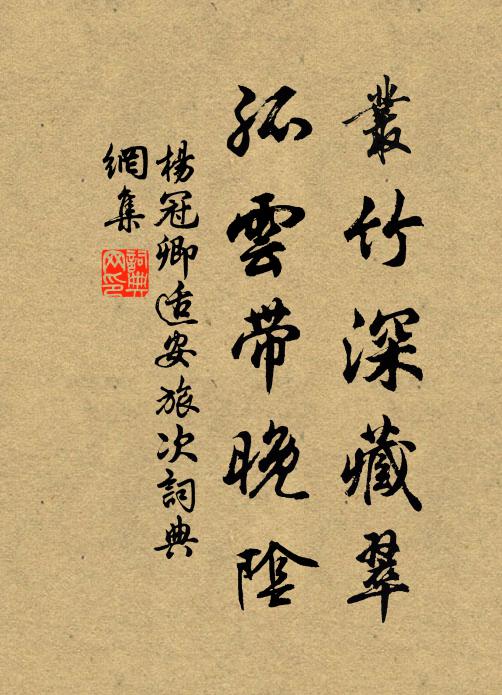 叢竹深藏翠
孤雲帶晚陰
楊冠卿适安旅次詞典
網集
詞典
网印